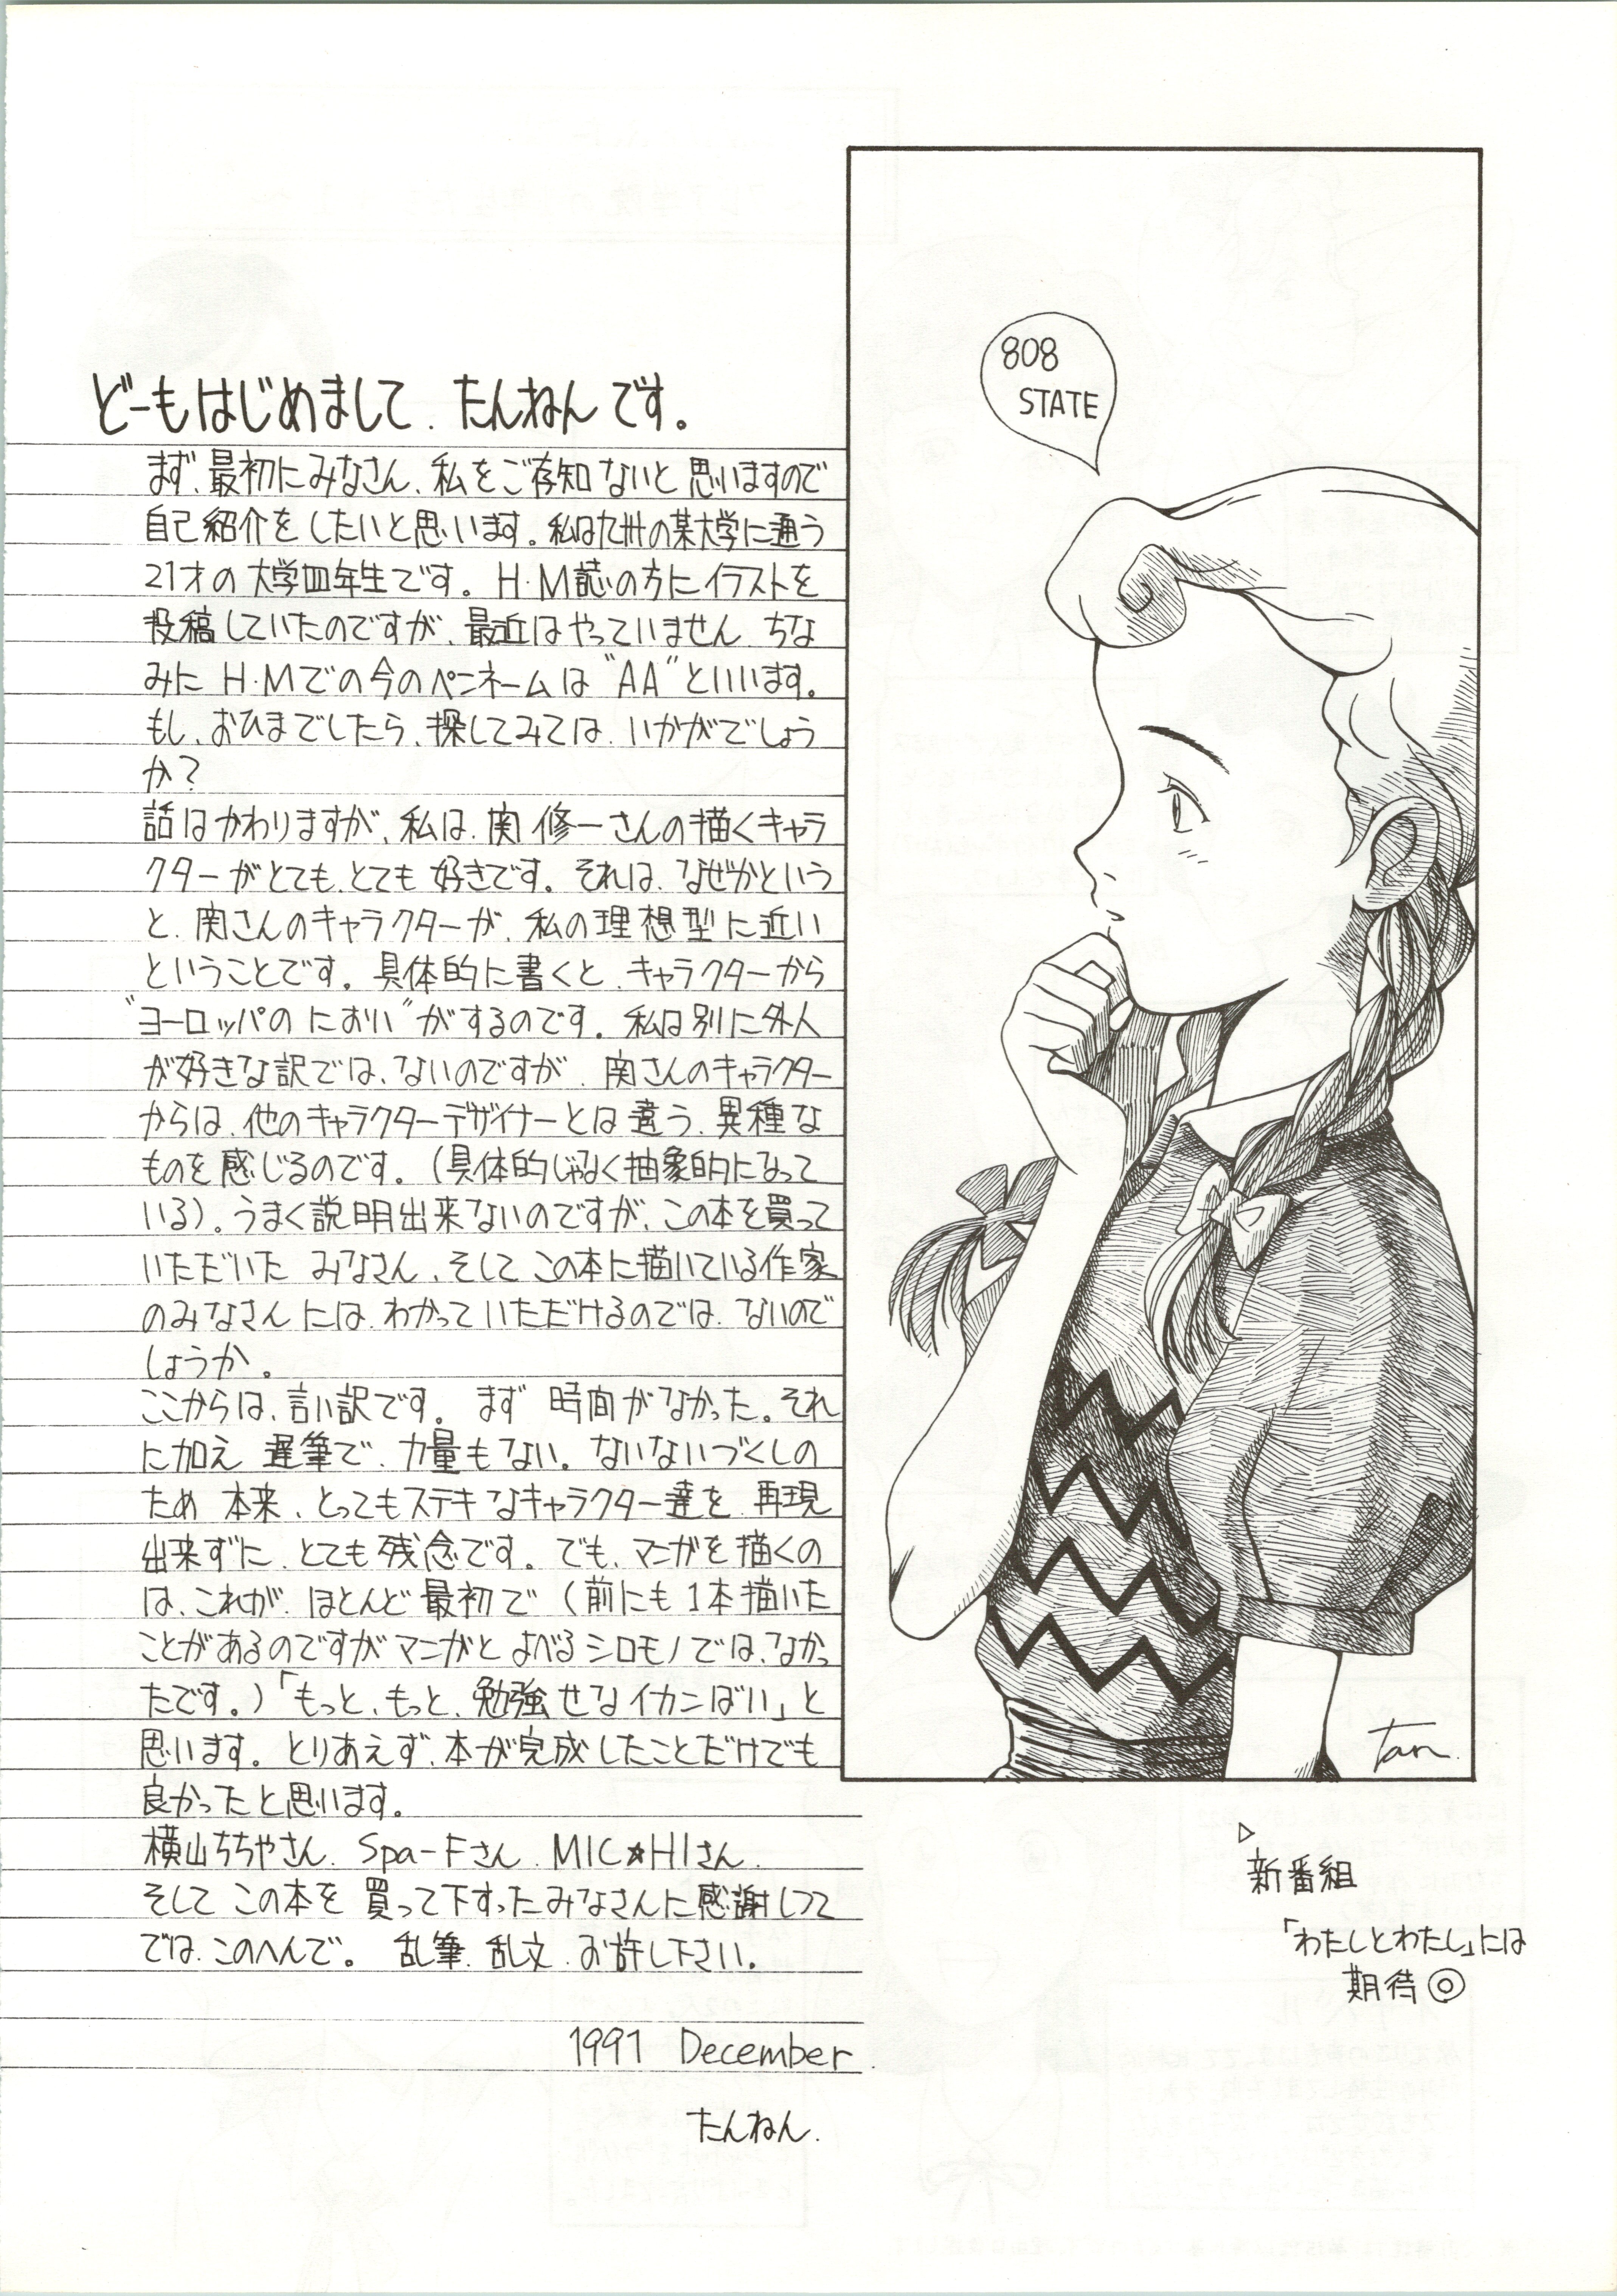 どーもはじめまして、たんねんです。
まず、最初にみなさん、私をご存知ないと思いますので
自己紹介をしたいと思います。私は九州の某大学に通う
21才の大学四年生です。H・M誌の方にイラストを
投稿していたのですが、最近はやっていません。ちな
みにH・Mでの今のペンネームは"AA"といいます。
もし、おひまでしたら、探してみては、いかがでしょう
か?
話はかわりますが、私は、関修一さんの描くキャラ
クターがとても、とても好きです。それは、なぜかという
と、関さんのキャラクターが、私の理想型に近い
ということです。具体的に書くと、キャラクターから
"ヨーロッパのにおい"がするのです。私は別に外人
が好きな訳では、ないのですが、関さんのキャラクター
からは、他のキャラクターデザイナーとは違う、異種な
ものを感じるのです。(具体的じゃなく抽象的になって
いる)。うまく説明出来ないのですが、この本を買って
いただいたみなさん、そしてこの本に描いている作家
のみなさんには、わかっていただけるのでは、ないので
しょうか。
ここからは、言い訳です。まず時間がなかった。それ
に加え遅筆で、力量もない。ないないづくしの
ため本来、とってもステキなキャラクター達を、再現
出来ずに、とても残念です。でも、マンガを描くの
は、これが、ほとんど最初で(前にも1本描いた
ことがあるのですがマンガとよべるシロモノでは、なかっ
たです。)「もっと、もっと、勉強せなイカンばい」と
思います。とりあえず、本が完成したことだけでも
良かったと思います。
横山ちちやさん、Spa-Fさん、MIC★HIさん、
そしてこの本を買って下すったみなさんに感謝しつつ
では、このへんで。乱筆、乱文、お許し下さい。
1991 December.
たんねん.
808
STATE
tan.
▷
新番組
「わたしとわたし」には
期待◎